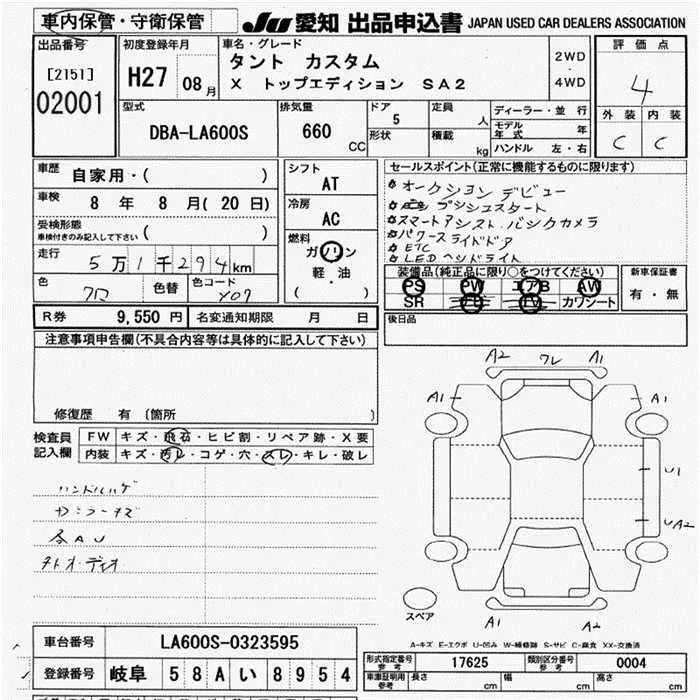 車内保管・守衛保管
JU 愛知 出品申込書 JAPAN USED CAR DEALERS ASSOCIATION
出品番号
[2151]
02001
初度登録年月
H27 08 月
車名・グレード
タント カスタム
X トップエディション SA2
2WD
・
4WD
評価点
4
外装 内装
C C
型式
DBA-LA600S
排気量
660
CC
ドア
5
形状
定員
人
積載
kg
ディーラー・並行
モデル年式 年
ハンドル 左・右
車歴
自家用・( )
車検
8 年 8 月( 20 日)
受検形態
車検付きのみ記入して下さい ( )
走行
5万1千294km
色
クロ
色替
色コード
X07
シフト
AT
冷房
AC
燃料
ガソリン
軽・油
( )
セールスポイント(正常に機能するものに限ります)
オークションデビュー
プッシュスタート
スマートアシスト.バックカメラ
パワースライドドア
ETC
LEDヘッドライト
装備品(純正品に限り○をつけてください)
PS PW エアB AW
SR ナビ TV カワシート
新車保証書
有・無
R券 9,550 円 名変通知期限 月 日
後日品
注意事項申告欄(不具合内容等は具体的に記入して下さい)
修復歴 有 〔箇所 〕
検査員
記入欄
FW キズ・飛石・ヒビ割・リペア跡・X要
内装 キズ・汚レ・コゲ・穴・スレ・キレ・破レ
ハンドルハゲ
各AU
A2 ワレ A1
A1 A1
U1
UA2
スペア
A1 A2
A-キズ E-エクボ U-凹み W-補修跡 S-サビ C-腐食 XX-交換済
車台番号 LA600S-0323595
登録番号 岐阜 58Aい8954
形式指定番号
参考
17625
類別区分番号
参考
0004
車両証明用
参考
長さ cm 幅 cm 高さ cm